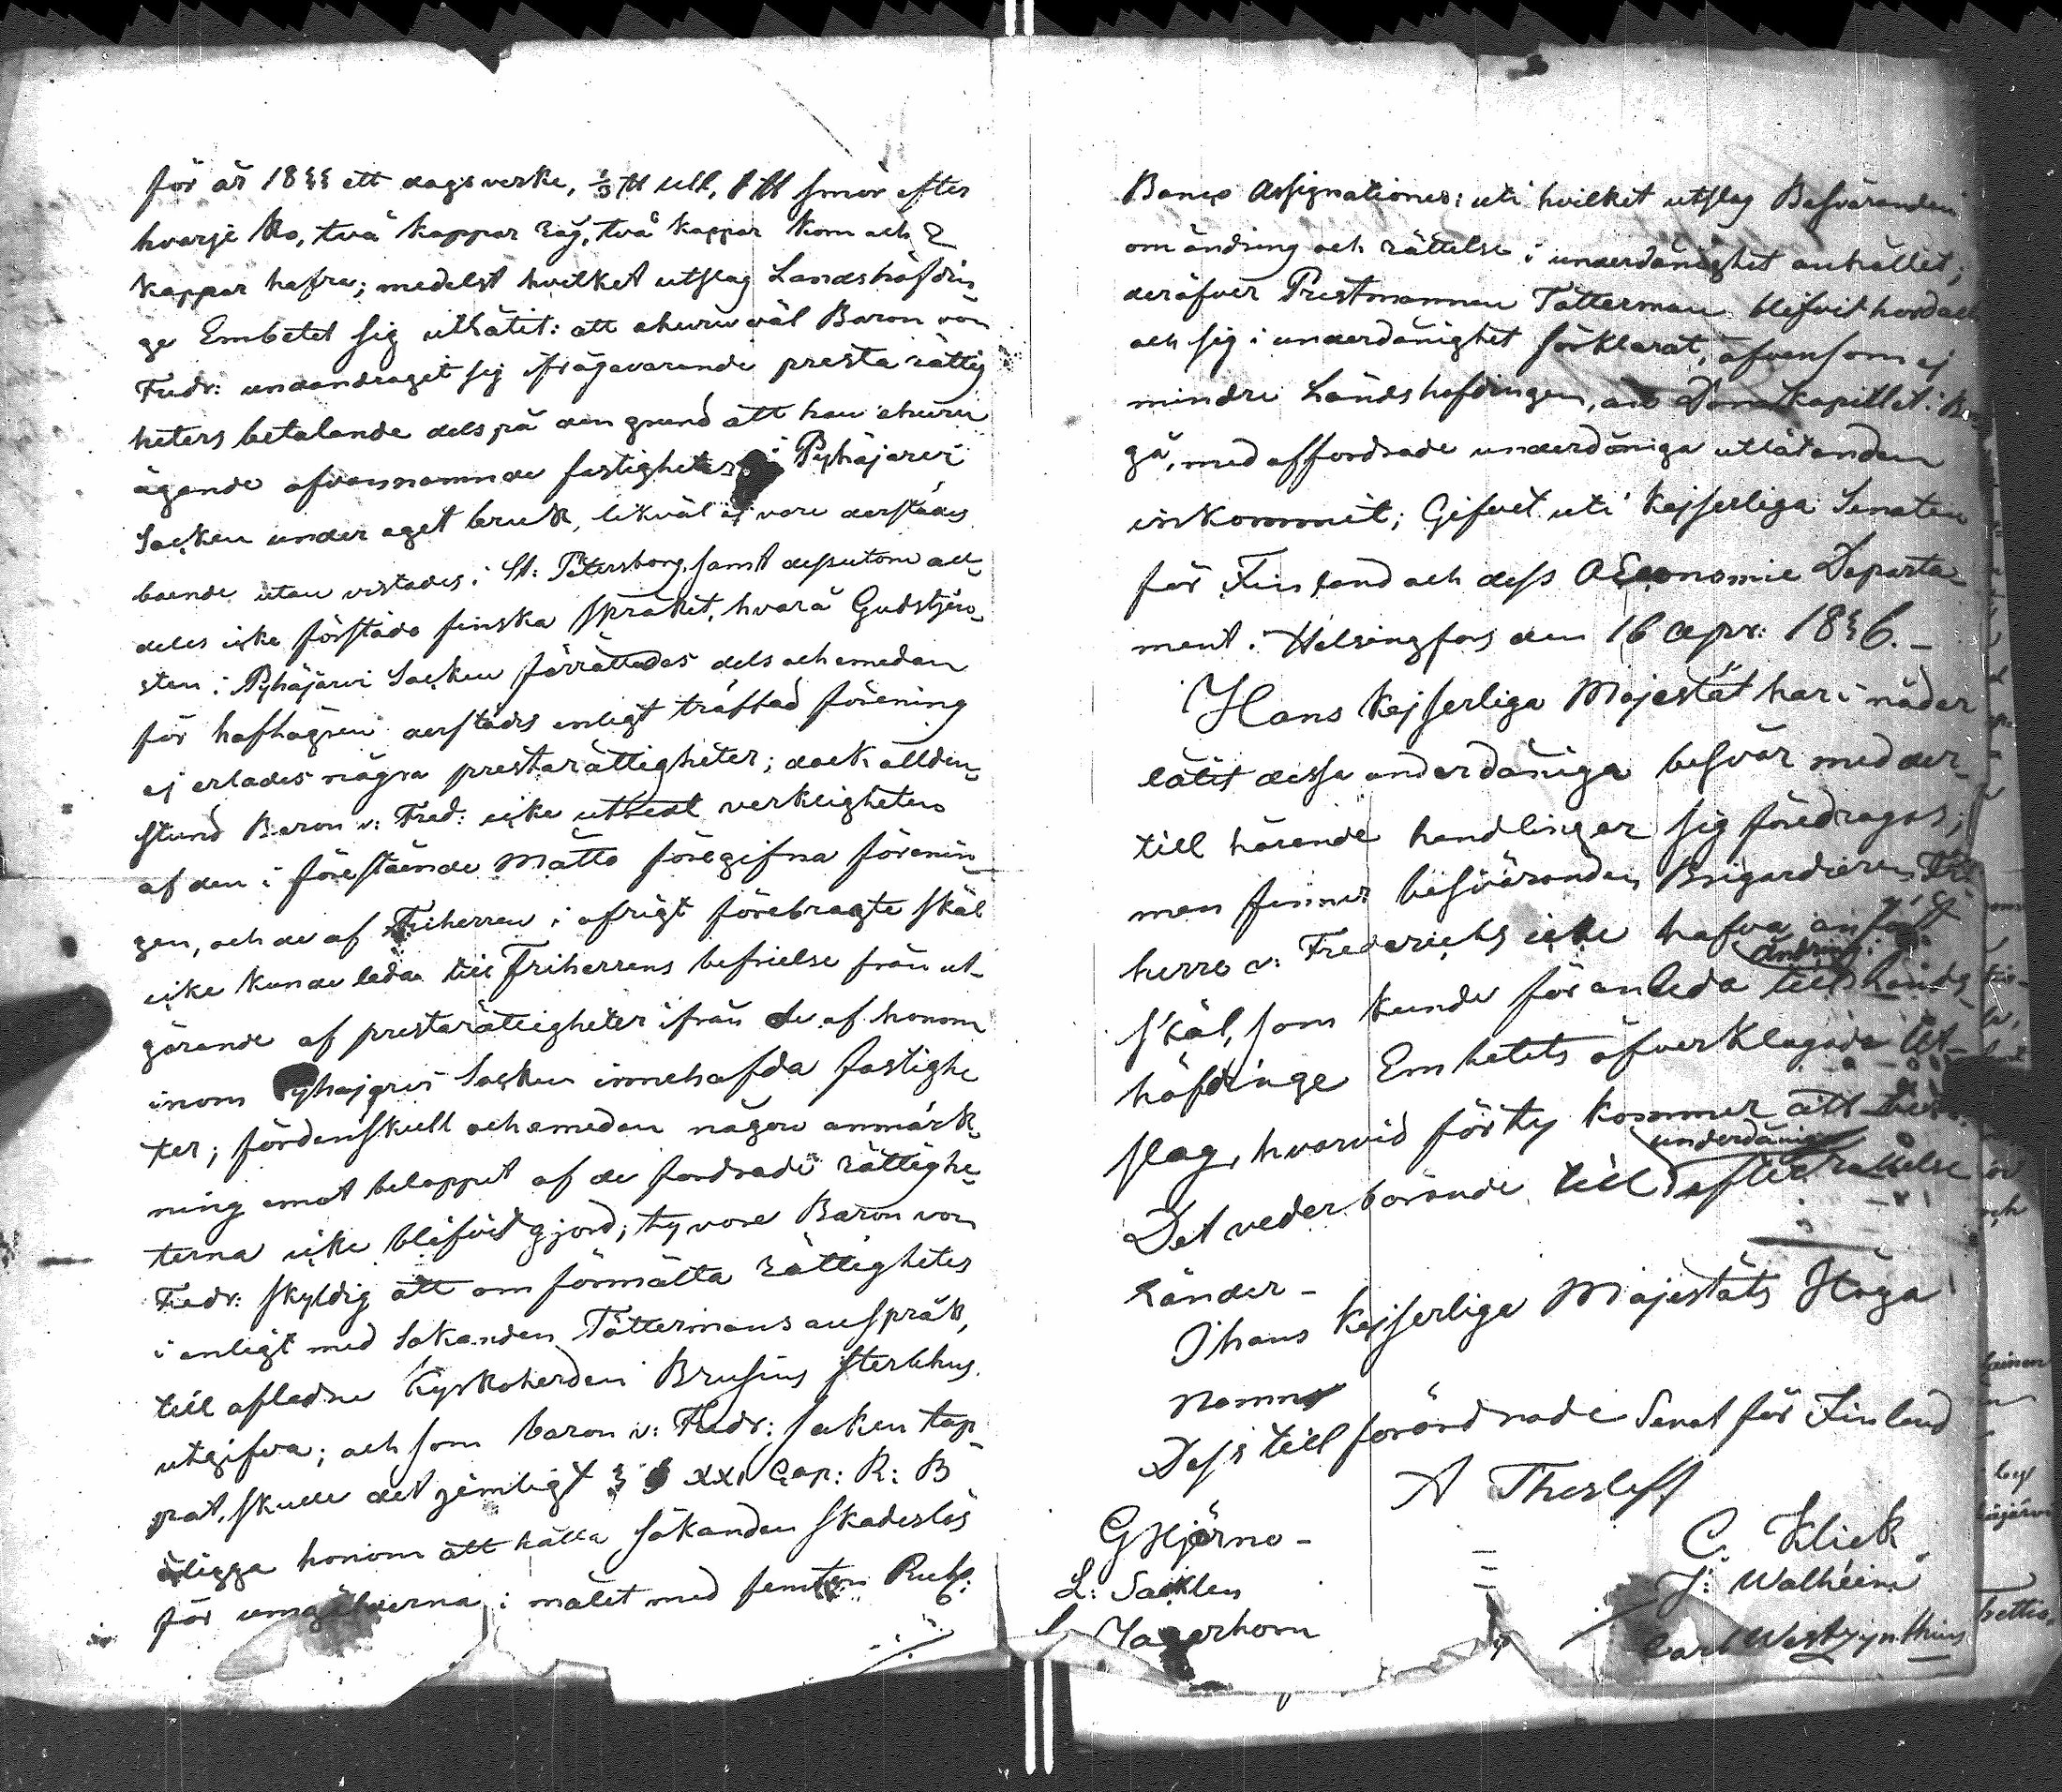 för år 1833 ett dagsverke, ⅓ ℔ ull, 1 ℔ smör efter
hvarje Ko, två Kappar Råg, två Kappar Korn och 2
Kappar hafre; medelst hvilket utslag Landshöfdin
ge Embetet sig utlåtit: att ehuru väl Baron von
Fredr: undandragit sig ifrågavarande presta rättig
heters betalande dels på den grund att han ehuru
ägande ofvannämnde fastigheter i Pyhäjärvi
Socken under eget bruk, likväl ej vore derstädes
boende utan vistades i St: Petersborg, samt dessutom all
deles icke förstode finska språket, hvarå Gudstjen
sten i Pyhäjärvi Socken förrättades dels ock emedan
för hoflägren derstädes enligt träffad förening
ej erlades några prestarättigheter; dock allden
stund Baron v: Fred: icke uthedt verkligheten
af den i förestående Måtto föregifna förenin
gen, och de af Friherren i öfrigt förebragte skäl
icke kunde leda till Friherrens befrielse från ut-
görande af prestarättigheter ifrån de af honom
inom Pyhäjärvi Socken innehafda fastighe
ter; fördenskull och emedan någon anmärk
ning emot beloppet af de fordrade rättighe
terna icke blifvit gjord; ty vore Baron von
Fredr: skyldig att om förmälta Rättigheter
i enligt med Sökanden Tättermans anspråk,
till aflednе Kyrkoherden Brusius sterbhus
utgifva; och som baron v: Fredr: saken tap
pat, skulle det jemligt 3 § XXI Cap: R: B
åligga honom att hålla sökanden skadeslös
för umgälderna i målet med femton Rub:
Banco Assignationer: uti hvilket utslag Besväranden
om ändring och rättelse i underdånighet anhållet;
deröfver Prestmannen Tätterman blifvit hörd och
och sig i underdånighet förklarat, äfvensom ej
mindre Landshöfdingen, än Domkapitlet i Bor
gå, med affordrade underdåniga utlåtanden
inkommit; Gifvet uti Kejserliga Senaten
för Finland och dess Œconomie Departe
ment i Helsingfors den 16 Apr: 1836.
Hans Kejserliga Majestät har i nåder
låtit dessa underdåniga besvär med der
till hörande handlingar sig föredragas;
men finner besväranden Brigardieren Fri
herre v: Frederichs icke hafva anfört
ändring i
skäl, som kunde föranleda till Lands
höfdinge Embetets öfverklagade Ut-
slag, hvarvid förty kommer att
underdånig
Det vederbörande till efterrättelse
länder -
I hans Kejserliga Majestäts Höga
Namn
Dess till förordnade Senat för Finland
A Thesleff
G Hjärne -
C. Klick
L: Sacklen
J: Walheim
Jägerhorn
Carl Westzynthius